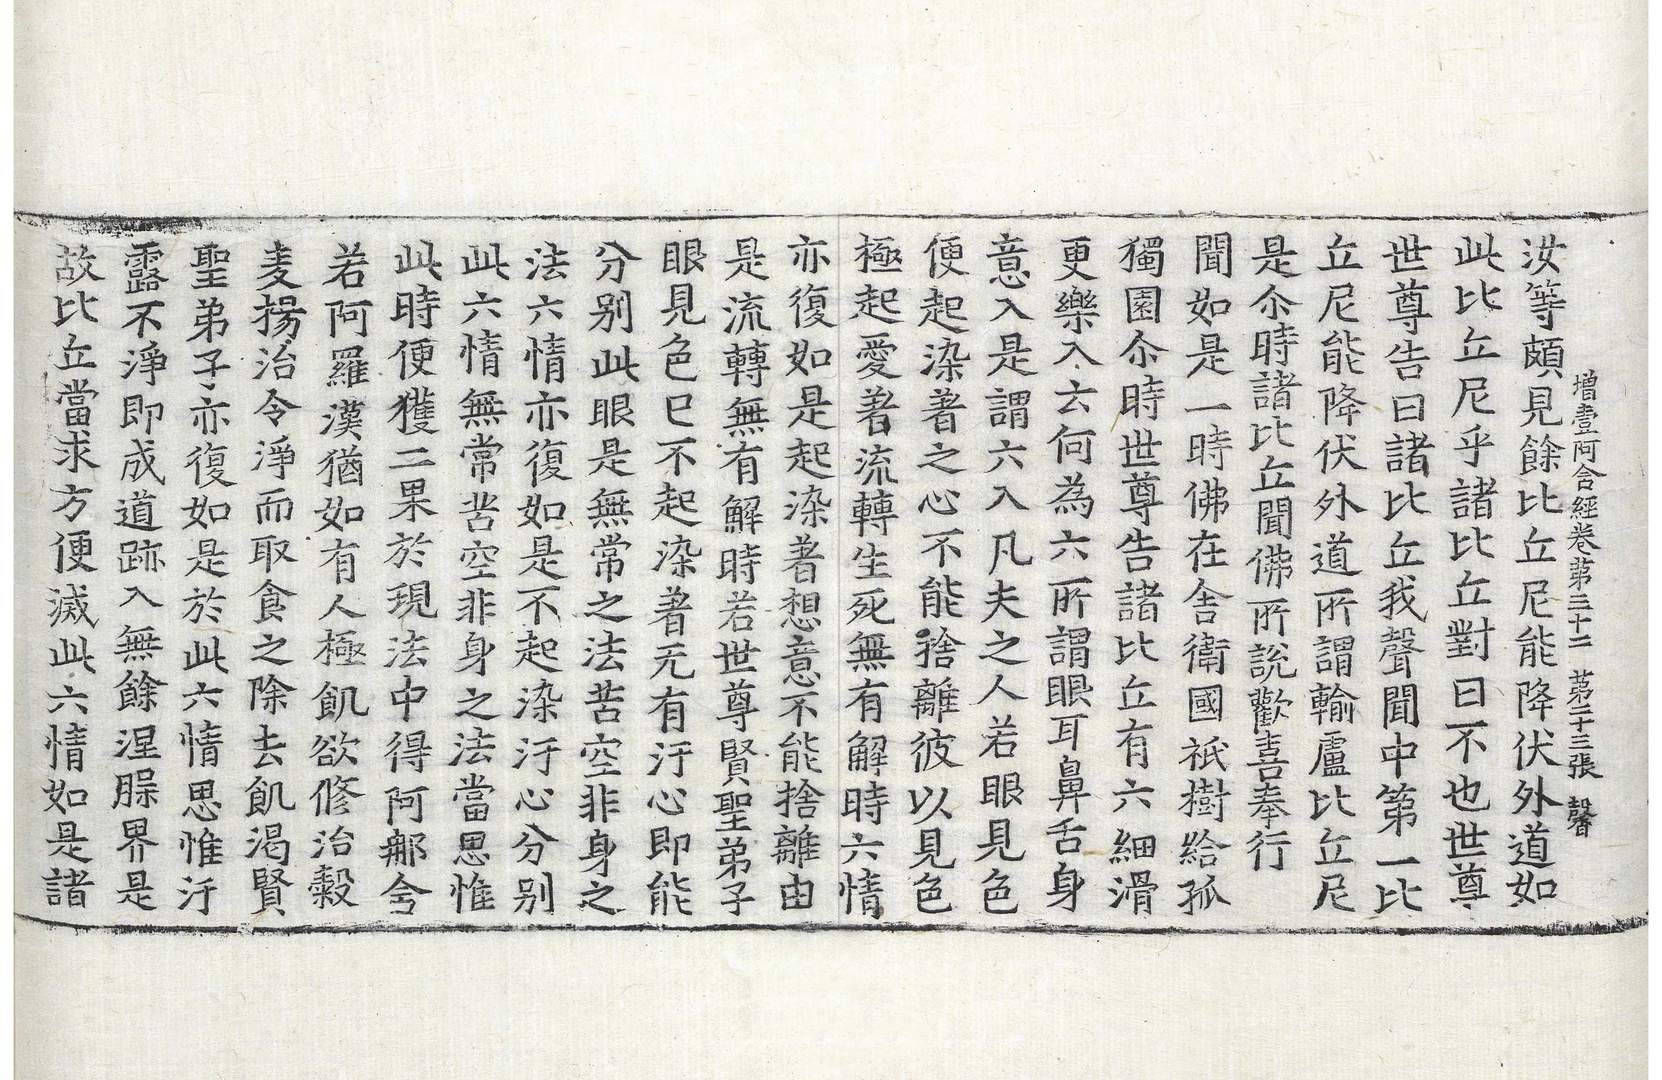 增壹阿含經卷第三十二　第二十三張　馨
汝等頗見餘比丘尼能降伏外道如
此比丘尼乎諸比丘對曰不也世尊
世尊告曰諸比丘我聲聞中第一比
丘尼能降伏外道所謂輸盧比丘尼
是尒時諸比丘聞佛所說歡喜奉行
聞如是一時佛在舍衛國祇樹給孤
獨園尒時世尊告諸比丘有六細滑
更樂入云何為六所謂眼耳鼻舌身
意入是謂六入凡夫之人若眼見色
便起染著之心不能捨離彼以見色
極起愛著流轉生死無有解時六情
亦復如是起染著想意不能捨離由
是流轉無有解時若世尊賢聖弟子
眼見色已不起染著无有汙心即能
分別此眼是無常之法苦空非身之
法六情亦復如是不起染汙心分別
此六情無常苦空非身之法當思惟
此時便獲二果於現法中得阿那含
若阿羅漢猶如有人極飢欲修治穀
麦揚治令淨而取食之除去飢渴賢
聖弟子亦復如是於此六情思惟汙
露不淨即成道跡入無餘涅槃界是
故比丘當求方便滅此六情如是諸